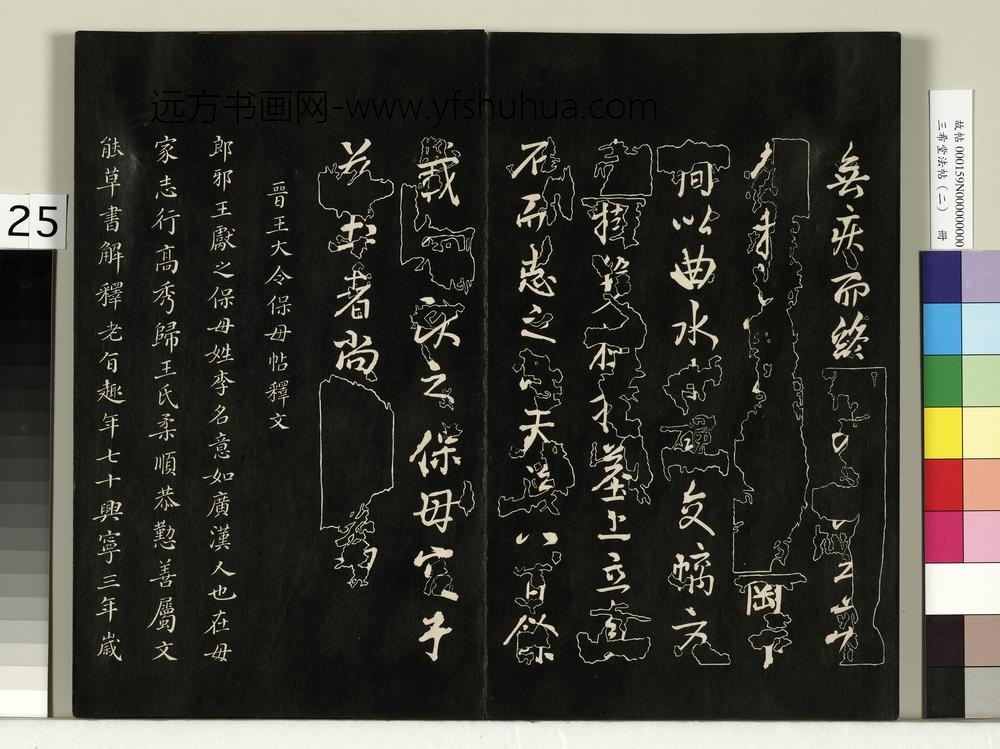 远方书画网-www.yfshuhua.com
無疾而終
岡下
間以曲水 交螭方
樹 墓上立貞
石而志之 夫後八百餘
載 獻之保母宮于
茲土者尚
晉王大令保母帖釋文
郎邪王獻之保母姓李名意如廣漢人也在母
家志行高秀歸王氏柔順恭懃善屬文
能草書解釋老旨趣年七十興寧三年歲
25
故帖 000159N000000000
三希堂法帖（二） 冊